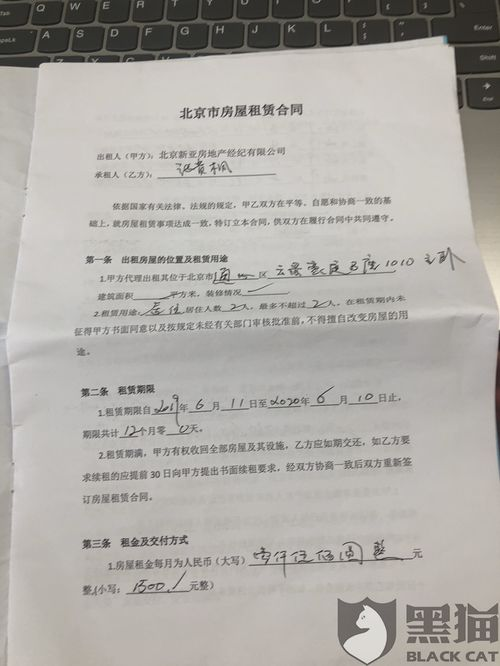 北京市房屋租赁合同
出租人（甲方）：北京新亚房地产经纪有限公司
承租人（乙方）：
依据国家有关法律、法规的规定，甲乙双方在平等、自愿和协商一致的基
础上，就房屋租赁事项达成一致，特订立本合同，供双方在履行合同中共同遵守。
第一条 出租房屋的位置及租赁用途
1.甲方代理出租其位于北京市通州区 1010 主卧
建筑面积 平方米，装修情况
2.租赁用途：居住居住人数 2 人，最多不超过 2 人。在租赁期内未
征得甲方书面同意以及按规定未经有关部门审核批准前，不得擅自改变房屋的用
途。
第二条 租赁期限
1.租赁期限自 2019 年 6 月 11 日至 2020 年 6 月 10 日止，
期限共计 12 个月零 0 天。
2.租赁期满，甲方有权收回全部房屋及其设施，乙方应如期交还，如乙方要
求续租的应提前 30 日向甲方提出书面续租要求，经双方协商一致后双方重新签
订房屋租赁合同。
第三条 租金及交付方式
1.房屋租金每月为人民币（大写）壹仟伍佰圆整 元
整,(小写： 1500./ 元整）
黑猫
BLACK CAT